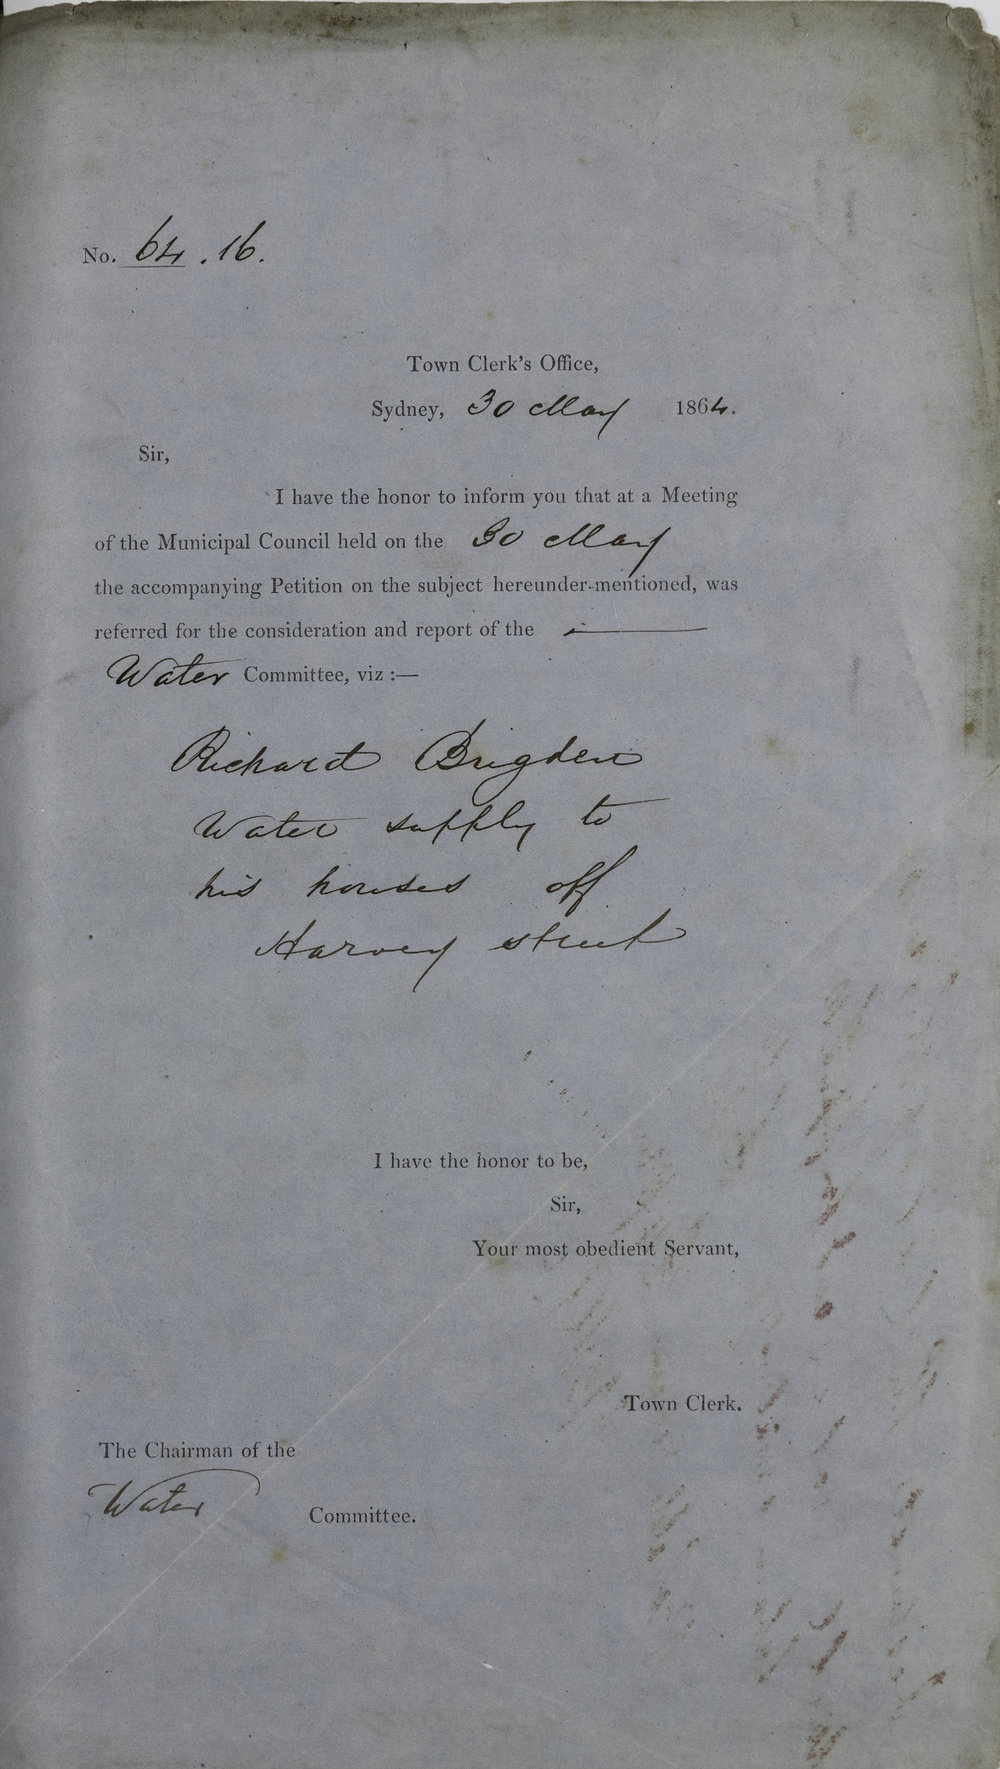 No. 64.16.
Town Clerk's Office,
Sydney, 30 May 1864.
Sir,
I have the honor to inform you that at a Meeting
of the Municipal Council held on the 30 May
the accompanying Petition on the subject hereunder-mentioned, was
referred for the consideration and report of the
Water Committee, viz :—
Richard Brigden
Water supply to
his houses off
Harvey street
I have the honor to be,
Sir,
Your most obedient Servant,
Town Clerk.
The Chairman of the
Water Committee.